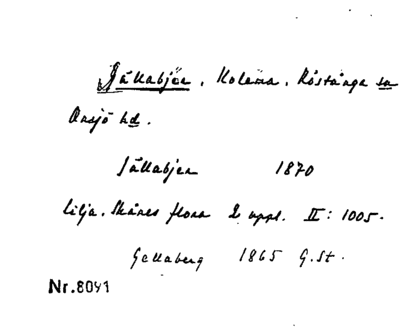 Jällabjär. Kolema. Röstånga sn
Onsjö hd.
Jällabjer 1870
Lilja. Skånes flora 2 uppl. II: 1005.
Gellaberg 1865 G.St.
Nr.8091